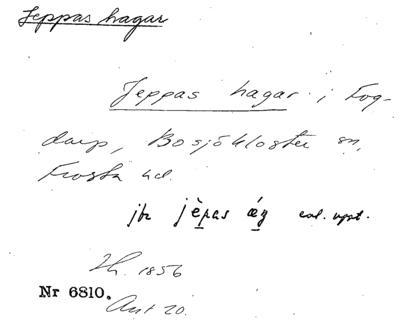 Jeppas hagar
Jeppas hagar i Fog-
darp, Bosjökloster sn,
Frosta hd.
jfr jèpas ǽg enl. uppt.
Lh. 1856
Nr 6810.
Ant 20.